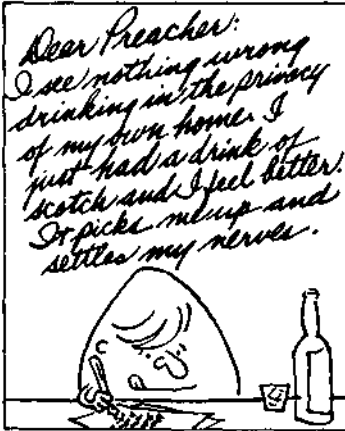 Dear Preacher:
I see nothing wrong
drinking in the privacy
of my own home. I
just had a drink of
scotch and I feel better.
It picks me up and
settles my nerves.